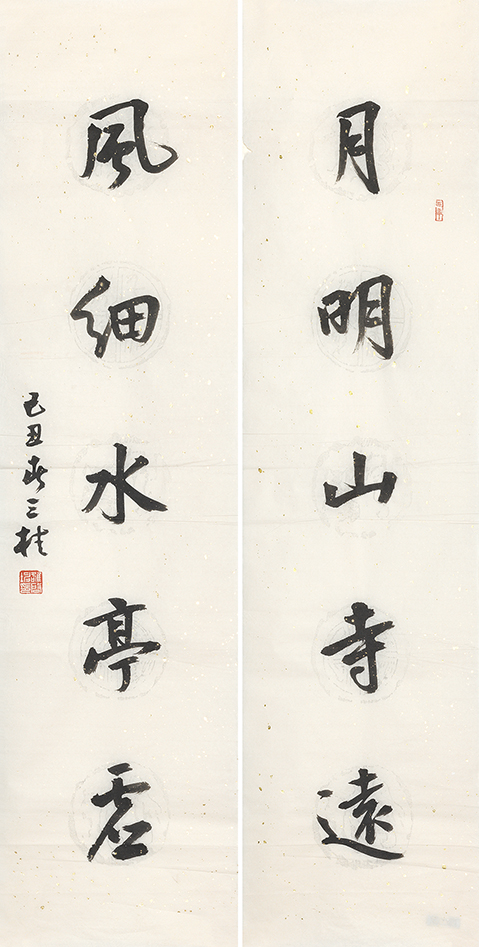 月明山寺遠
風細水亭虛
己丑春三桂